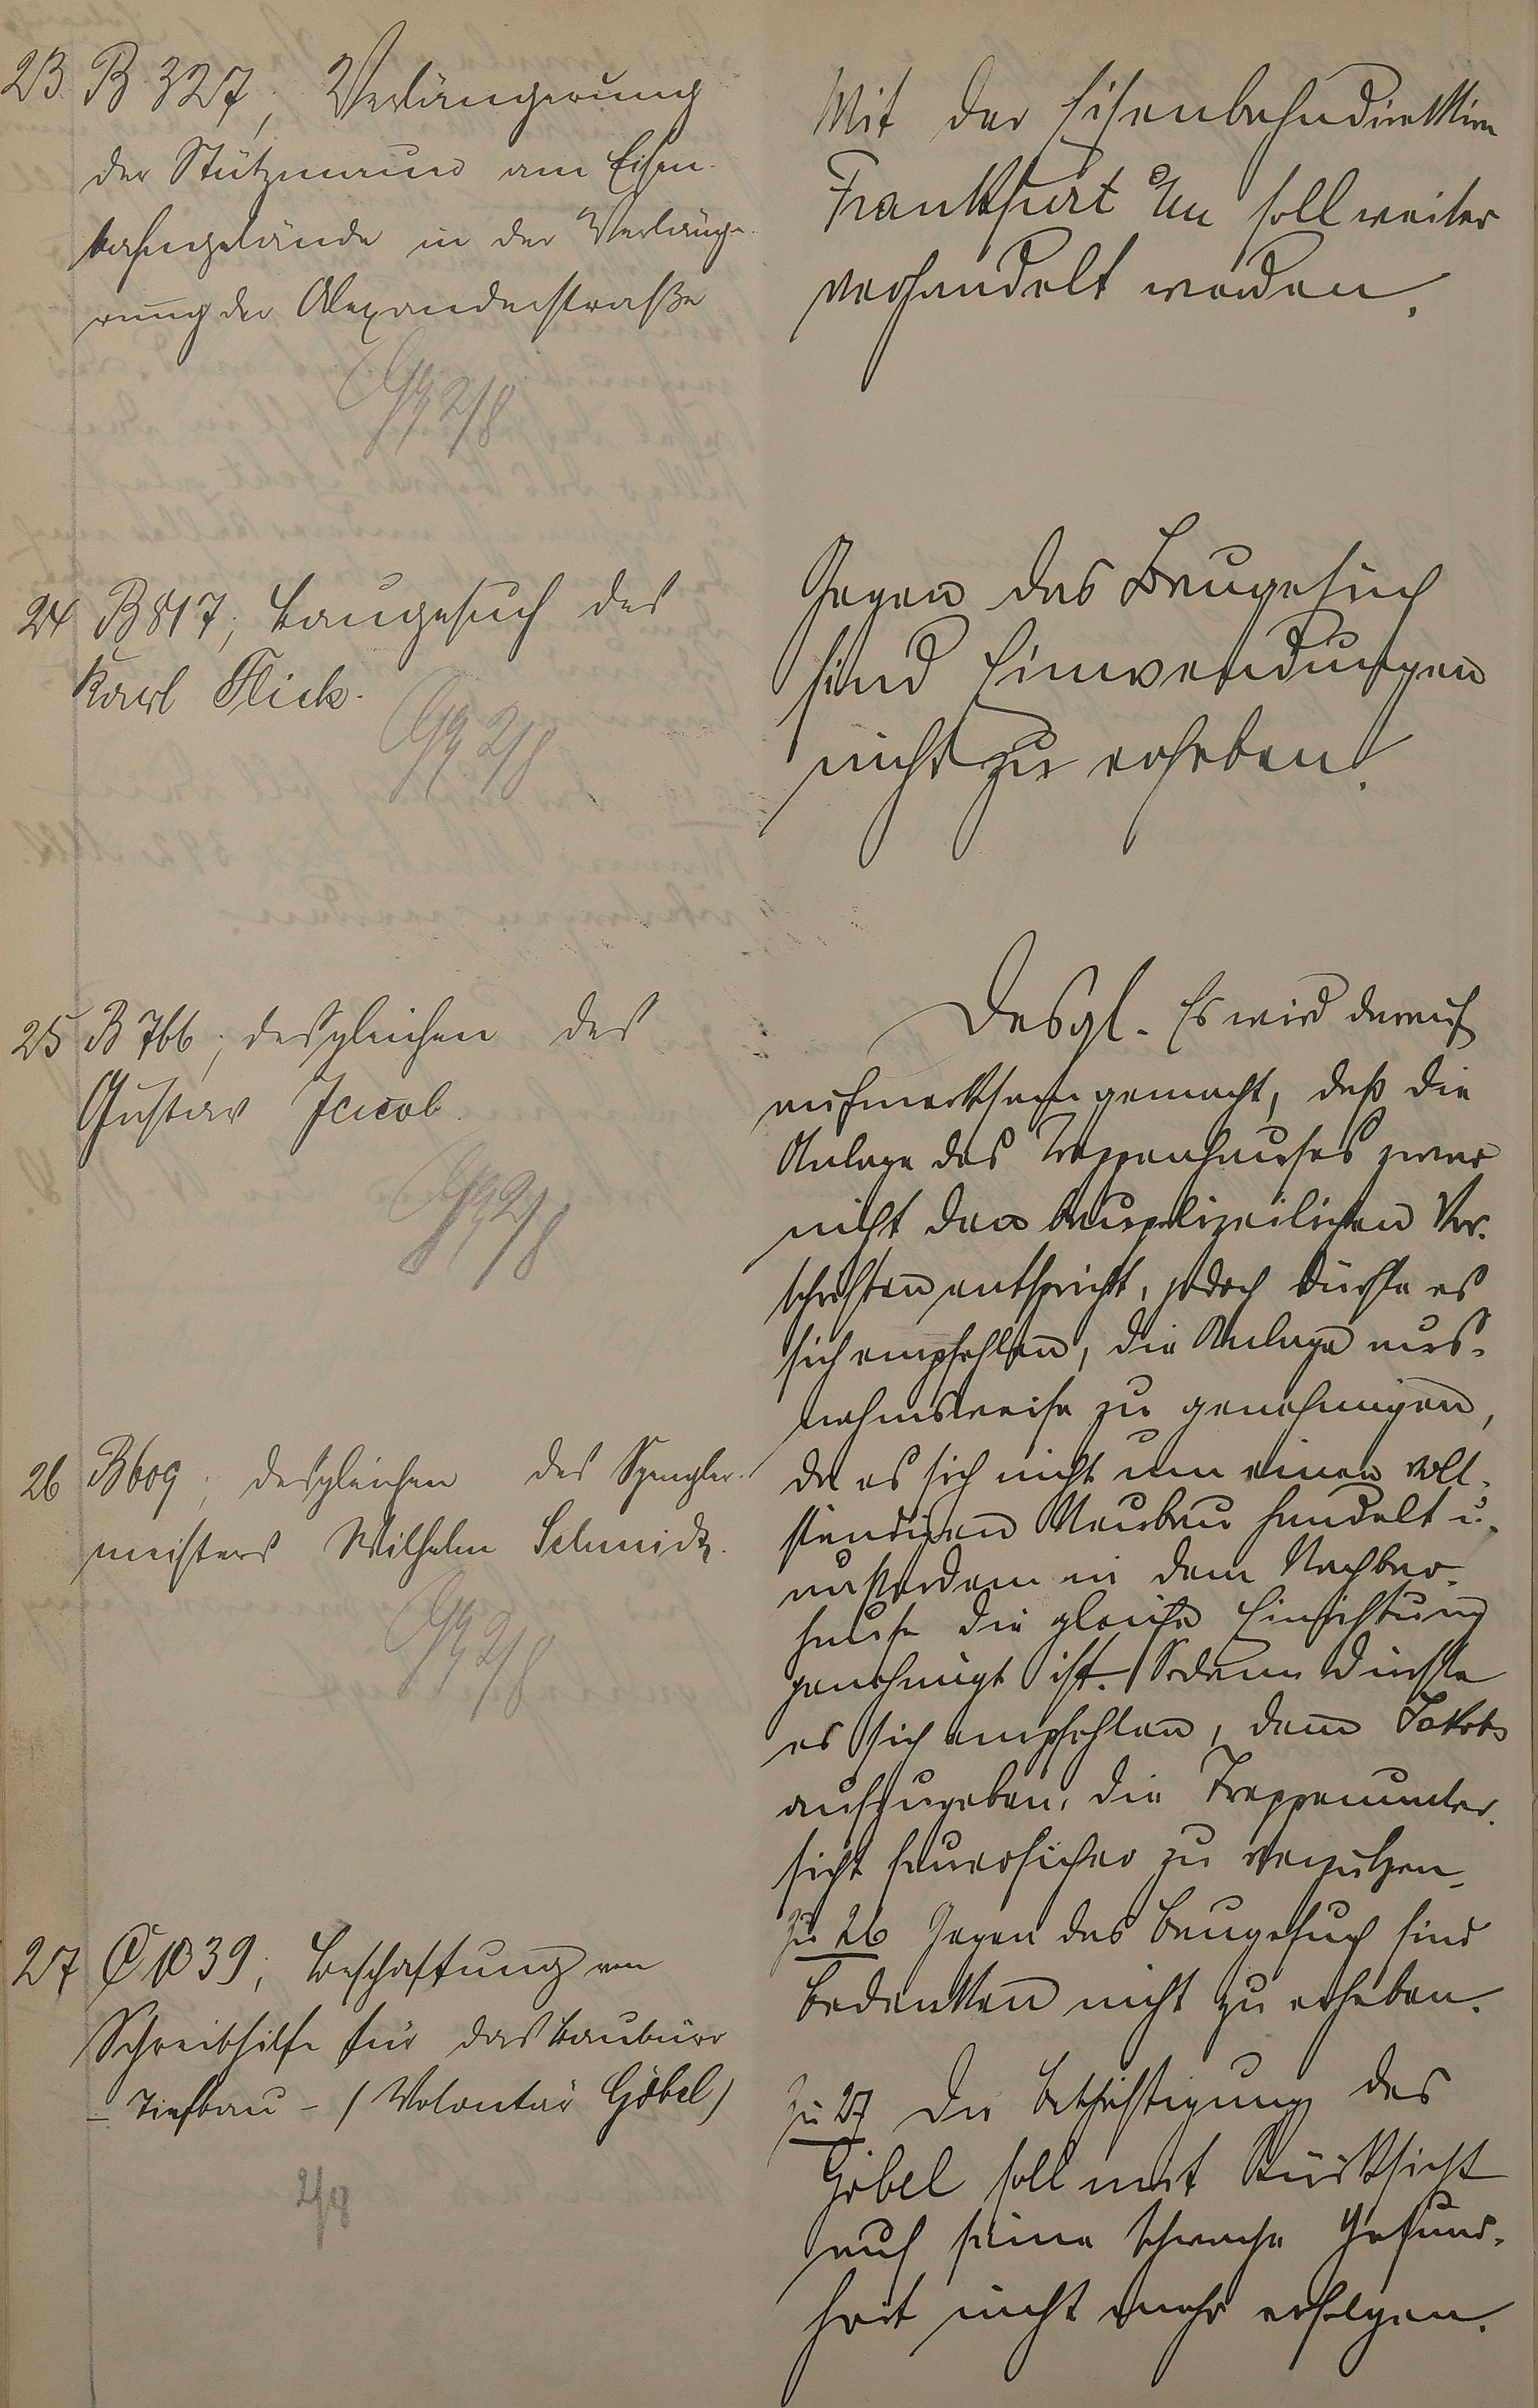 23 B 327, Verlängerung
der Stützmauer am Eisen-
bahngelände in der Verlänge-
rung der Alexanderstraße
2/8
Mit der Eisenbahndirektion
Frankfurt a/M soll weiter
verhandelt werden.
24 B 817, Baugesuch des
Karl Flick.
2/8
Gegen das Baugesuch
sind Einwendungen
nicht zu erheben.
25 B 766, desgleichen des
Gustav Jacob.
2/8
Desgl. Es wird darauf
aufmerksam gemacht, daß die
Anlage des Treppenhauses zwar
nicht den baupolizeilichen Vor-
schriften entspricht, jedoch dürfte es
sich empfehlen, die Anlage aus-
nahmsweise zu genehmigen,
da es sich nicht um einen voll-
ständigen Neubau handelt u.
außerdem in dem Nachbar-
hause die gleiche Einrichtung
genehmigt ist. Sodann dürfte
es sich empfehlen, dem Jakob
aufzugeben, die Treppenunter-
sicht feuersicher zu verputzen.
26 B 609, desgleichen des Spengler-
meisters Wilhelm Schmidt.
2/8
zu 26 Gegen das Baugesuch sind
Bedenken nicht zu erheben.
27 C 1039, Beschaffung von
Schreibhilfe für das Baubüro
- Tiefbau - (Volontär Göbel)
2/8
zu 27 Die Beschäftigung des
Göbel soll mit Rücksicht
auf seine schwache Gesund-
heit nicht mehr erfolgen.